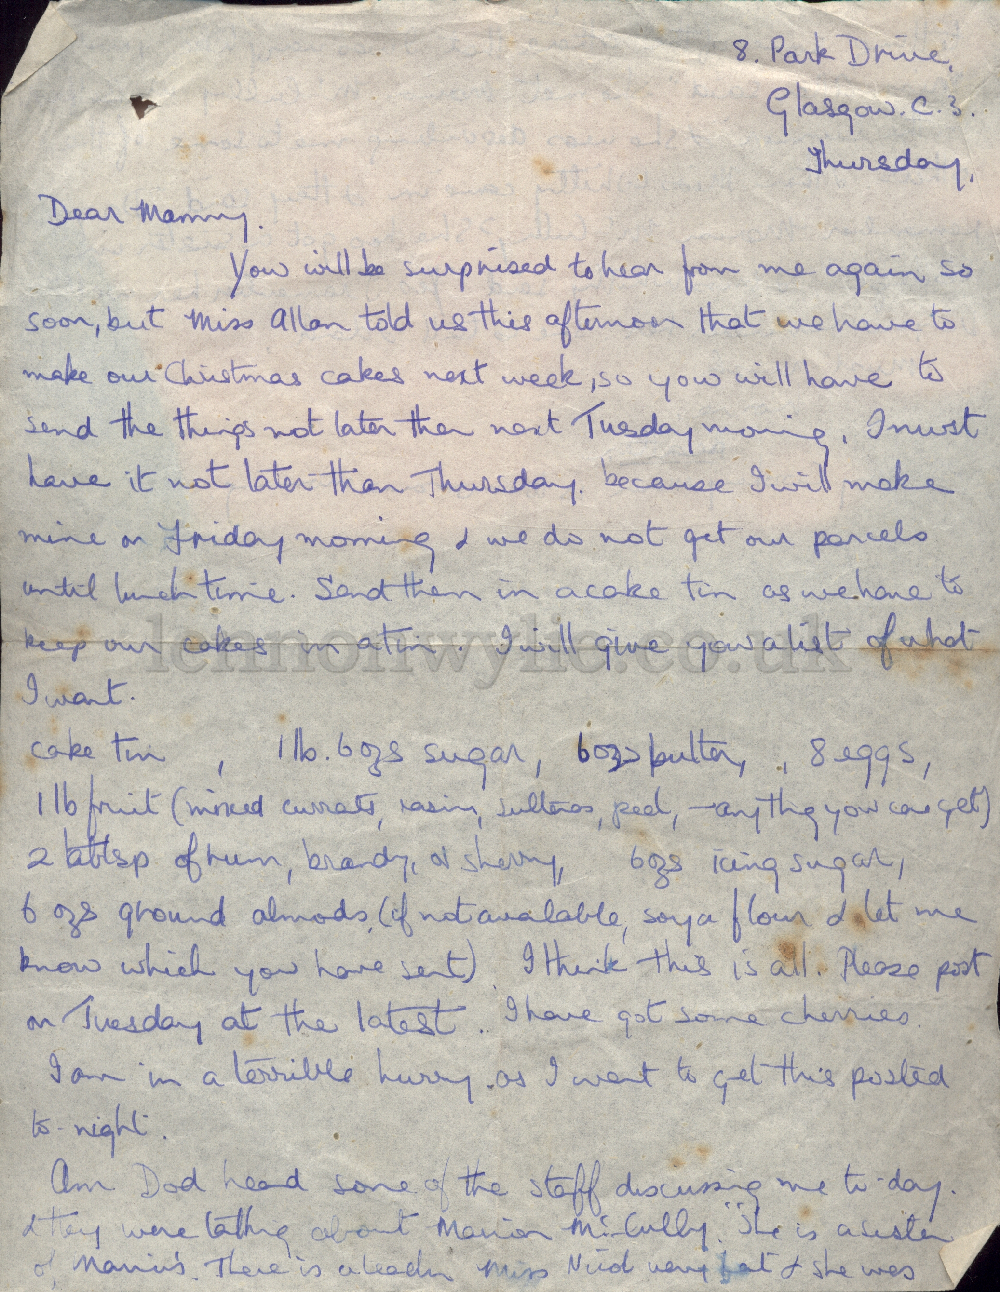 8. Park Drive,
Glasgow. C. 3.
Thursday,
Dear Mammy.
You will be surprised to hear from me again so
soon, but Miss Allan told us this afternoon that we have to
make our Christmas cakes next week, so you will have to
send the things not later than next Tuesday morning. I must
have it not later than Thursday. because I will make
mine on Friday morning & we do not get our parcels
until lunch time. Send them in a cake tin as we have to
keep our cakes in a tin. I will give you a list of what
I want.
lennonwylie.co.uk
cake tin, 1 lb. 6 ozs sugar, 6 ozs butter, 8 eggs,
1 lb fruit (mixed currats, rasins, sultanas, peel, – anything you can get)
2 tabtlsp of rum, brandy, or sherry, 6 ozs icing sugar,
6 ozs ground almods, (if not available, soya flour & let me
know which you have sent). I think this is all. Please post
on Tuesday at the latest. I have got some cherries.
I am in a terrible hurry. as I want to get this posted
to-night.
Ann Dod heard some of the staff discussing me to-day.
& they were talking about Marion McCully. "She is a sister
of Marion's. There is a Miss very fat & she was